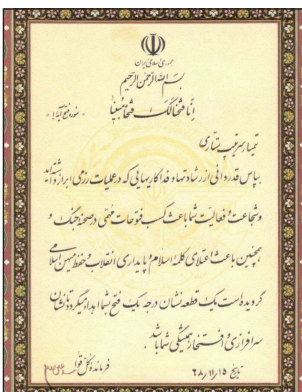 جمهوری اسلامی ایران
بسم الله الرحمن الرحیم
إنا فتحنا لک فتحا مبینا
سوره فتح آیه ۱
تیمسار سرتیپ ستاری
بپاس قدردانی از رشادتها و فداکاریهایی که در عملیات رزمی ابراز داشته‌اید
و شجاعت و فعالیت شما باعث کسب فتوحات مهمی در صحنه جنگ و
همچنین باعث اعتلای کلمه اسلام و پایداری انقلاب و حفظ میهن اسلامی
گردیده است یک قطعه نشان درجه یک فتح بشما اهدا میگردد تا نشان
سرافرازی و افتخار همیشگی شما باشد.
تاریخ ۶۸/۱۱/۱۵
فرمانده کل قوا